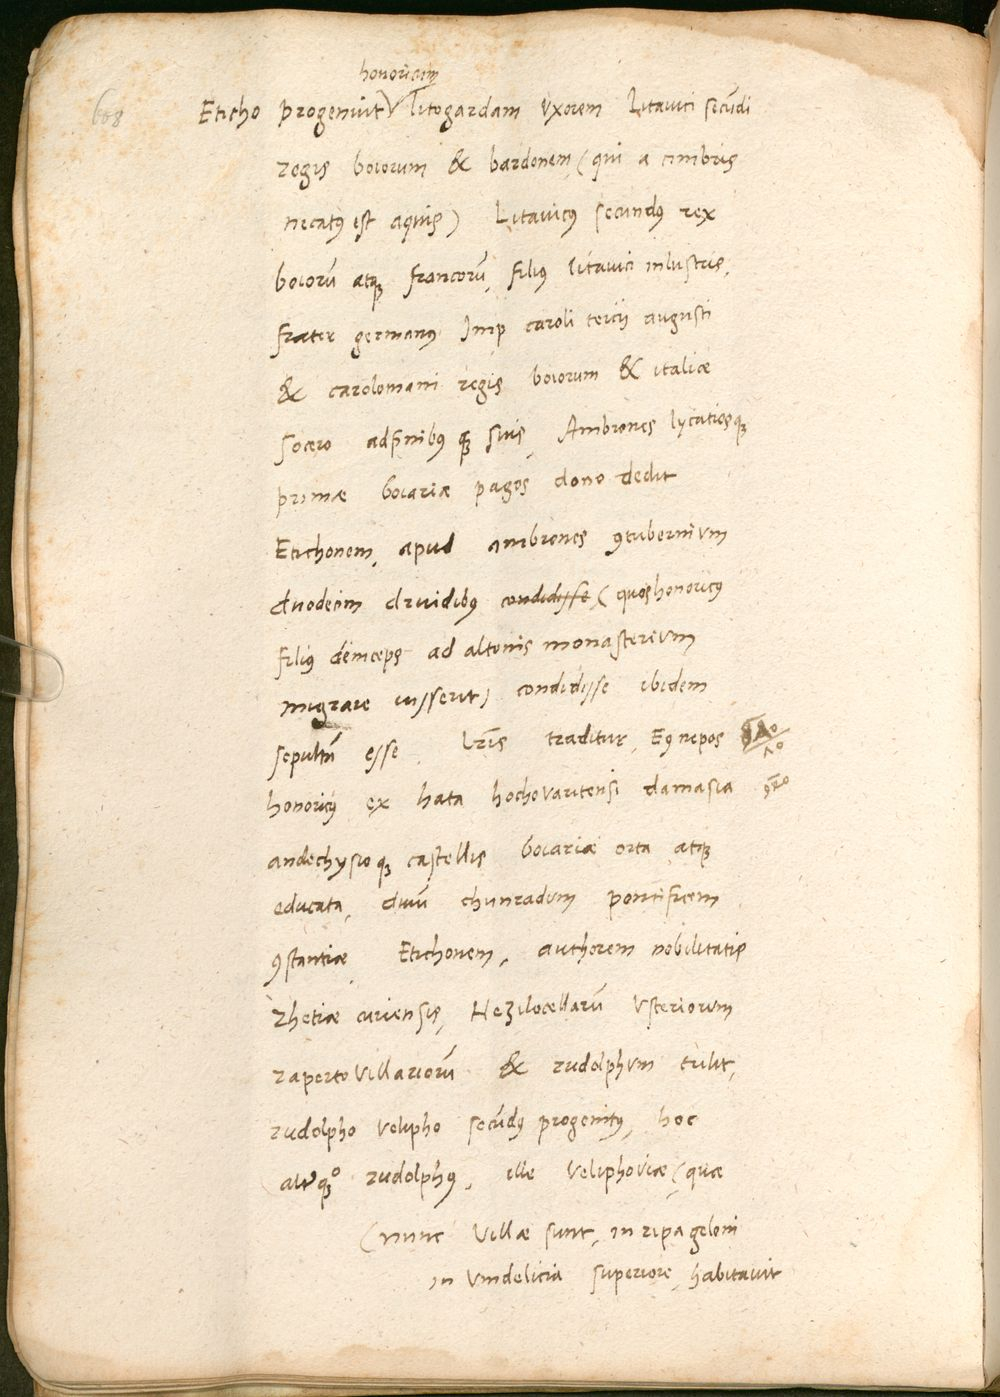 honoricum
608
Eticho progenuit litogardam Vxorem Litauici secūdi
regis boiorum & bardonem (qui a cimbris
necatꝰ est aquis) Litauicꝰ secundꝰ rex
boiorū atqꝫ francorū, filiꝰ litauici inlustris,
frater germanꝰ Imp caroli tercij augusti
& carolomani regis boiorum & italiæ
Socero adfinibꝰ qꝫ suis, Ambrones lycatiosqꝫ
primæ boiariæ pagos dono dedit
Etichonem, apud ambrones ꝯtubernium
duodecim druidibꝰ condidisse, (quos honoricꝰ
filiꝰ deinceps ad altonis monasterium
migrare iusserit) condidisse ibidem
sepultū esse lr̄is traditur, Eꝰ nepos
honoricꝰ ex hata hochovaritensi damasia
andechysioqꝫ castellis boiariæ orta atqꝫ
educata, diuū chunradum pontificem
ꝯstantiæ Etichonem, authorem nobilitatis
rhetiæ curiensis, Hezilocellarū Vsteriorum
rapertoVillariorū & rudolphum tulit,
rudolpho velipho secūdꝰ progenitꝰ, hoc
rudolphꝰ, ille Veliphoviæ (quæ
(nunc Villæ sunt, in ripa geloni
in Vindelicia superiore habitauit